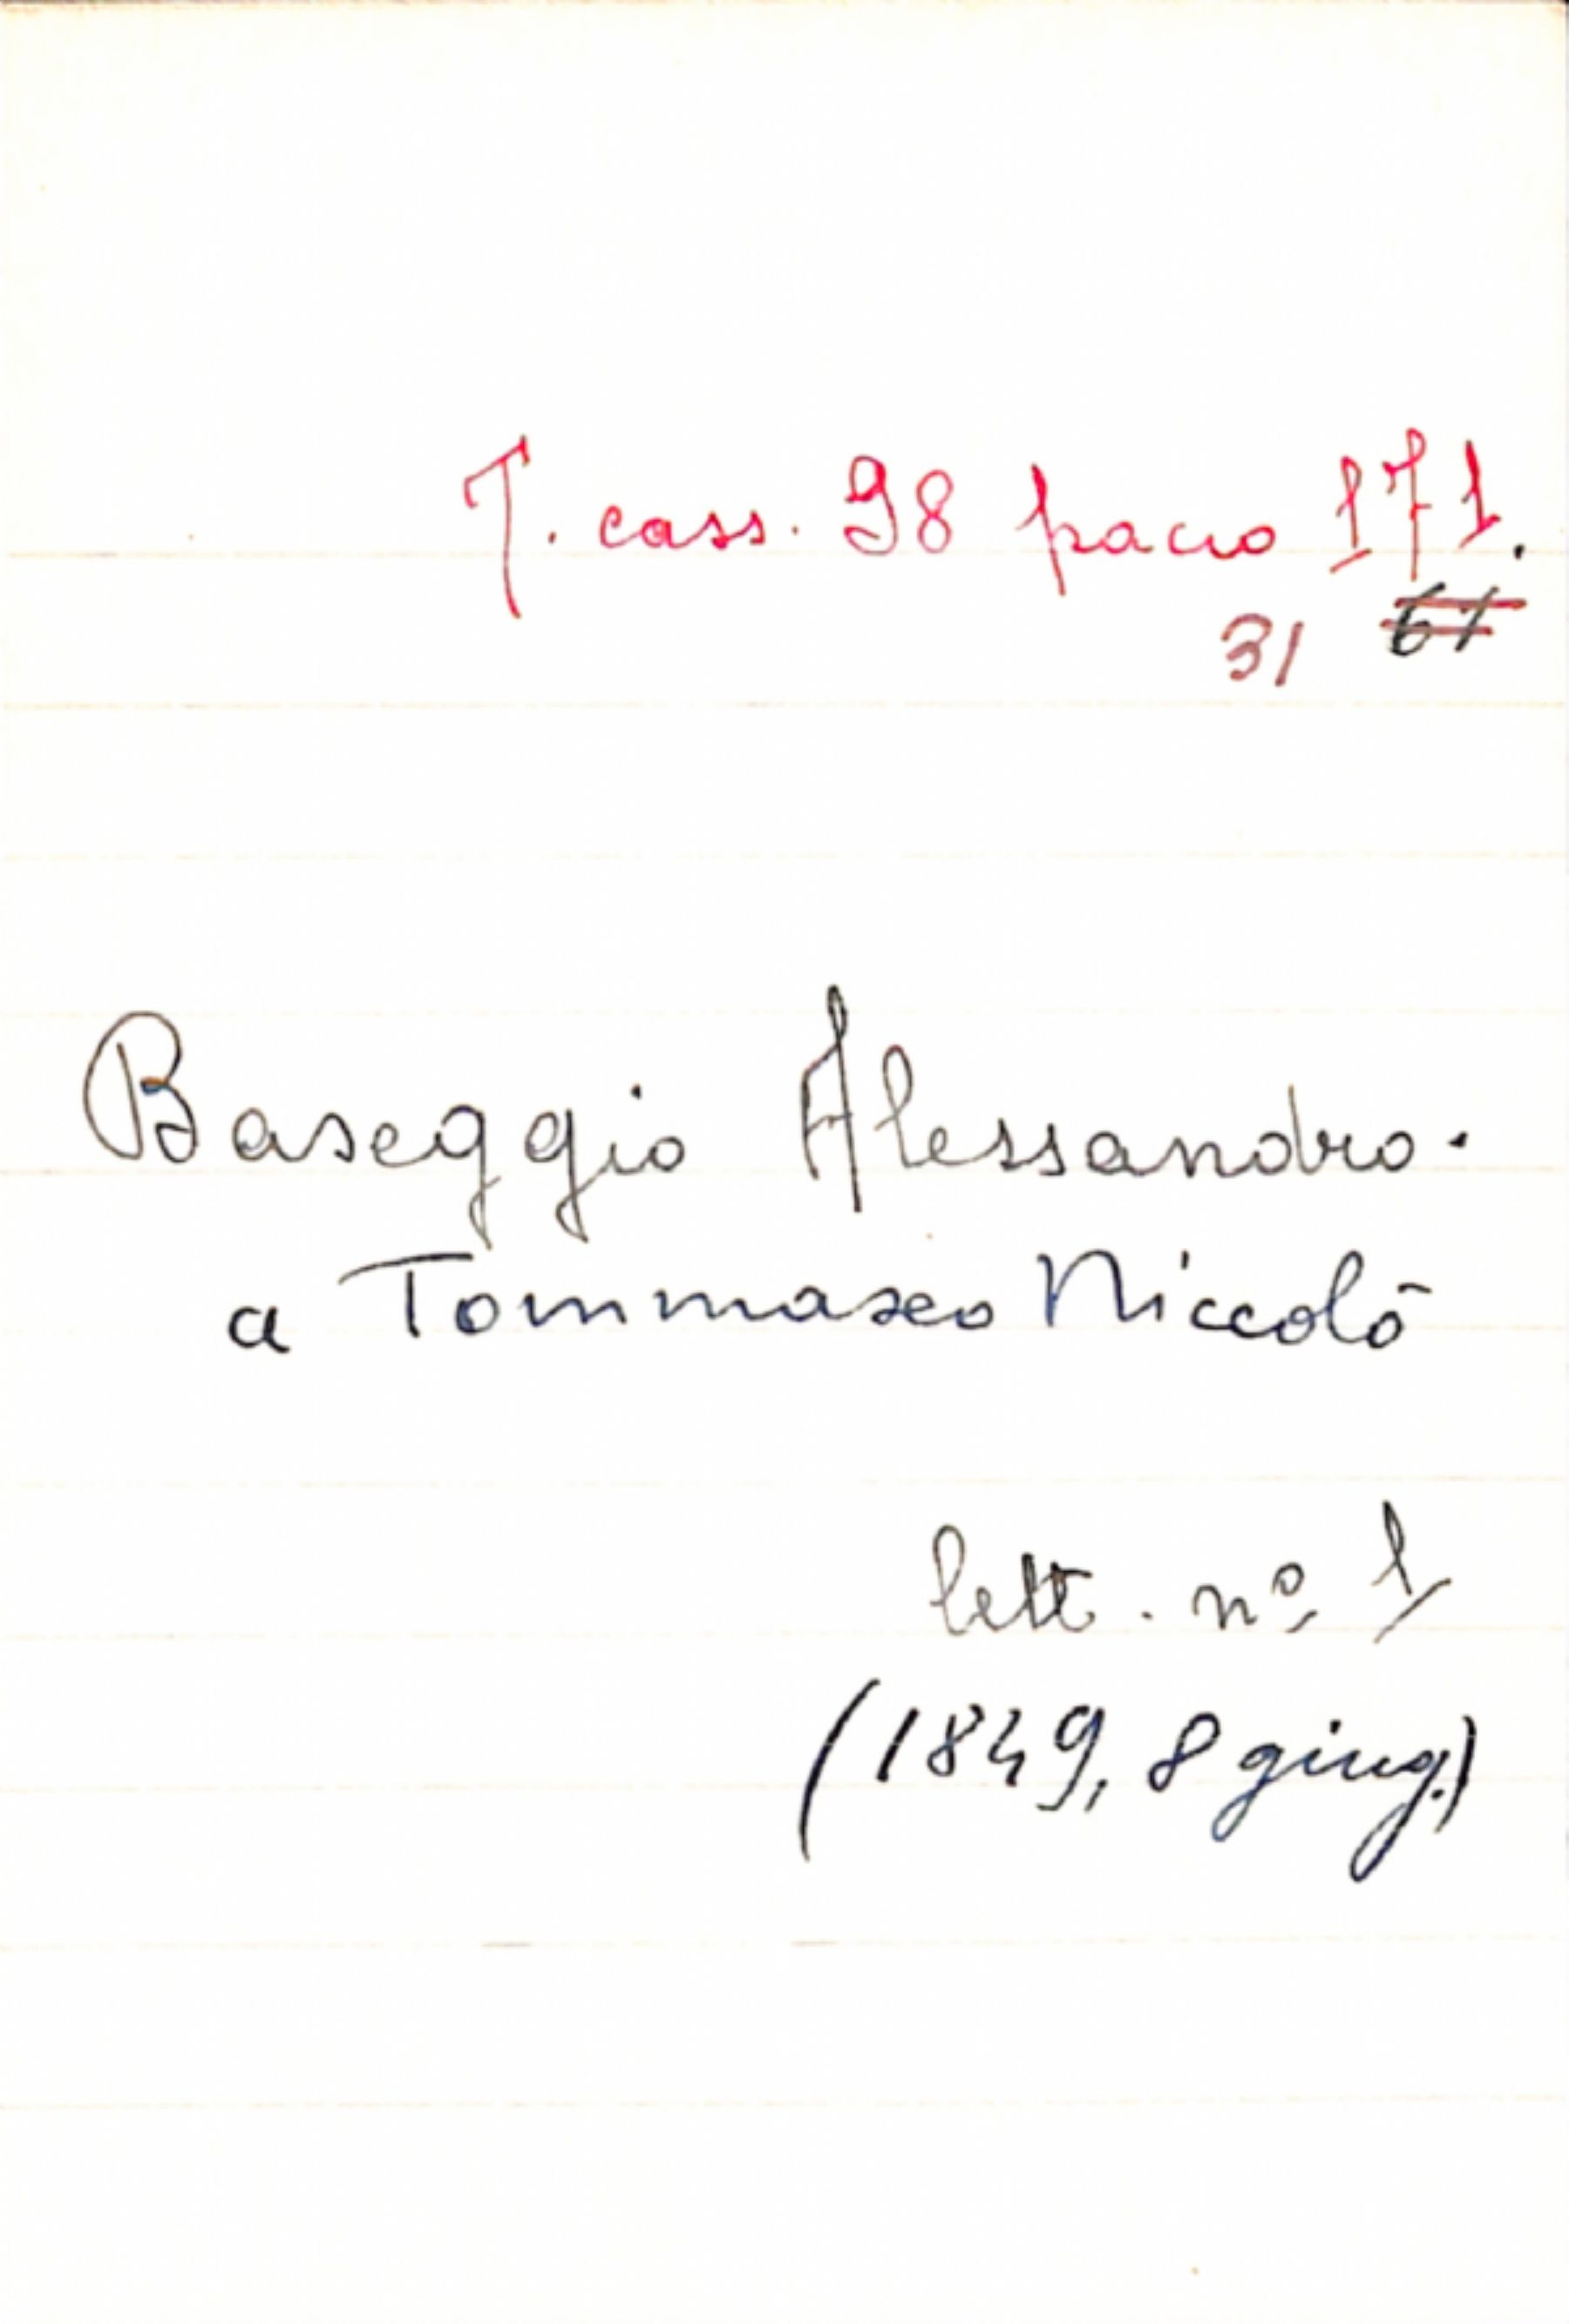 T. cass. 98 pacco 171.
31 61
Baseggio Alessandro.
a Tommaseo Niccolò
lett. nº 1
(1849, 8 giug.)